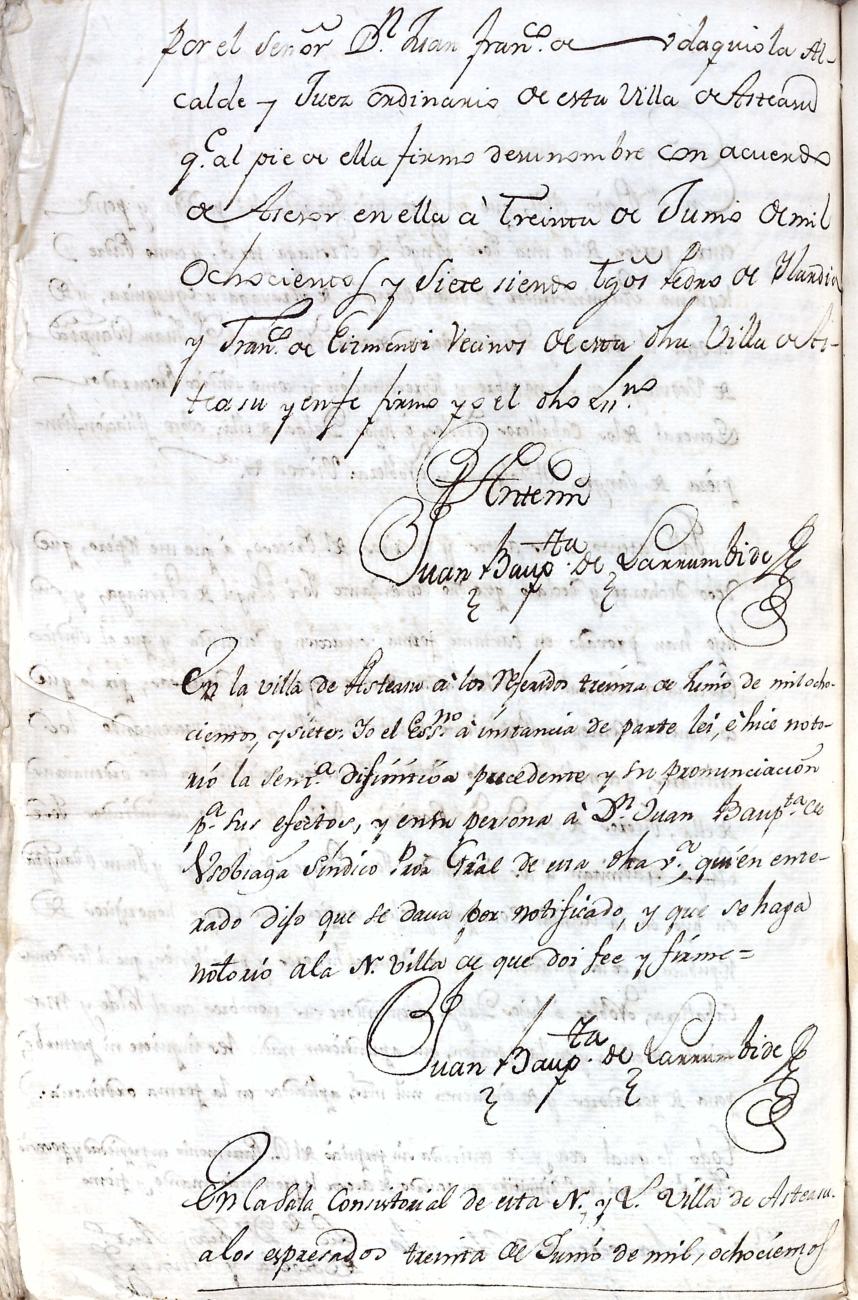 por el Señor Dn. Juan Franco. de Udaquiola Al-
calde y Juez ordinario de esta Villa de Asteasu
qe. al pie de ella firmo de su nombre con acuerdo
de Asesor en ella à treinta de Junio de mil
Ochocientos y Siete siendo tgõs Pedro de Ylardia
y Franco. de Eizmendi Vecinos de esta dha Villa de As-
teasu y en fe firmo yo el dho Essno.
Antemi
Juan Baupta. de Larrumbide
En la villa de Asteasu à los Referidos treinta de Junio de mil ocho-
cientos, y siete: Yo el Essno. à instancia de parte lei, è hice noto-
rio la sena. difinitiba precedente y su pronunciacion
pa. sus efectos, y en su persona à Dn. Juan Baupta. de
Usobiaga Síndico Pror Gral de esta dha va. quien ente-
rado dijo que se dava por notificado, y que se haga
notorio a la N. villa de que doi fee y firme=
Juan Baupta. de Larrumbide
En la Sala Consistorial de esta N. y L. Villa de Asteasu.
a los expresados treinta de Junio de mil, ochocientos